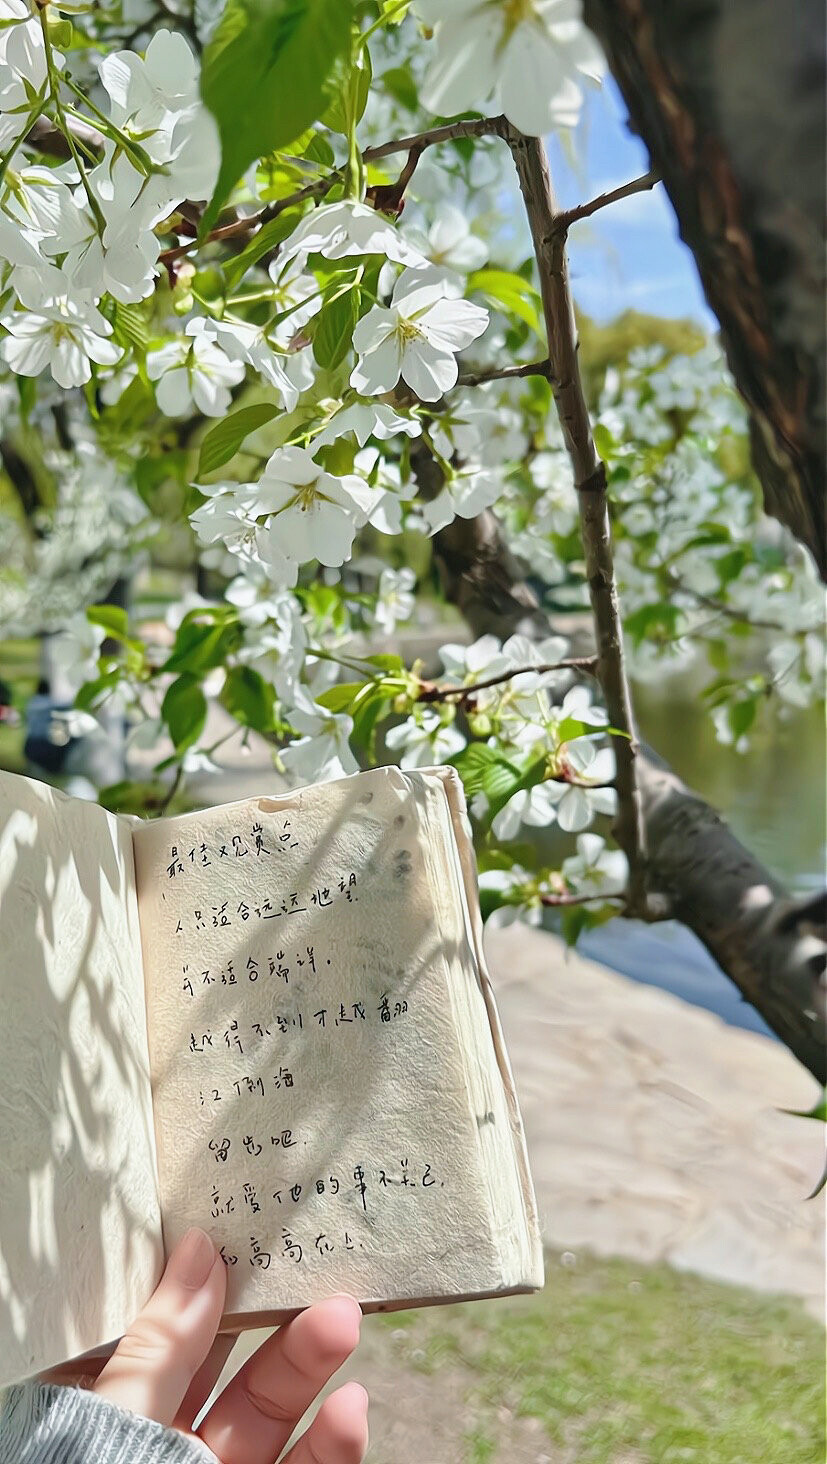 最佳观赏点
人只适合远远地望
并不适合端详。
越得不到才越翻
江倒海
留步吧.
就爱他的事不关己.
和高高在上.